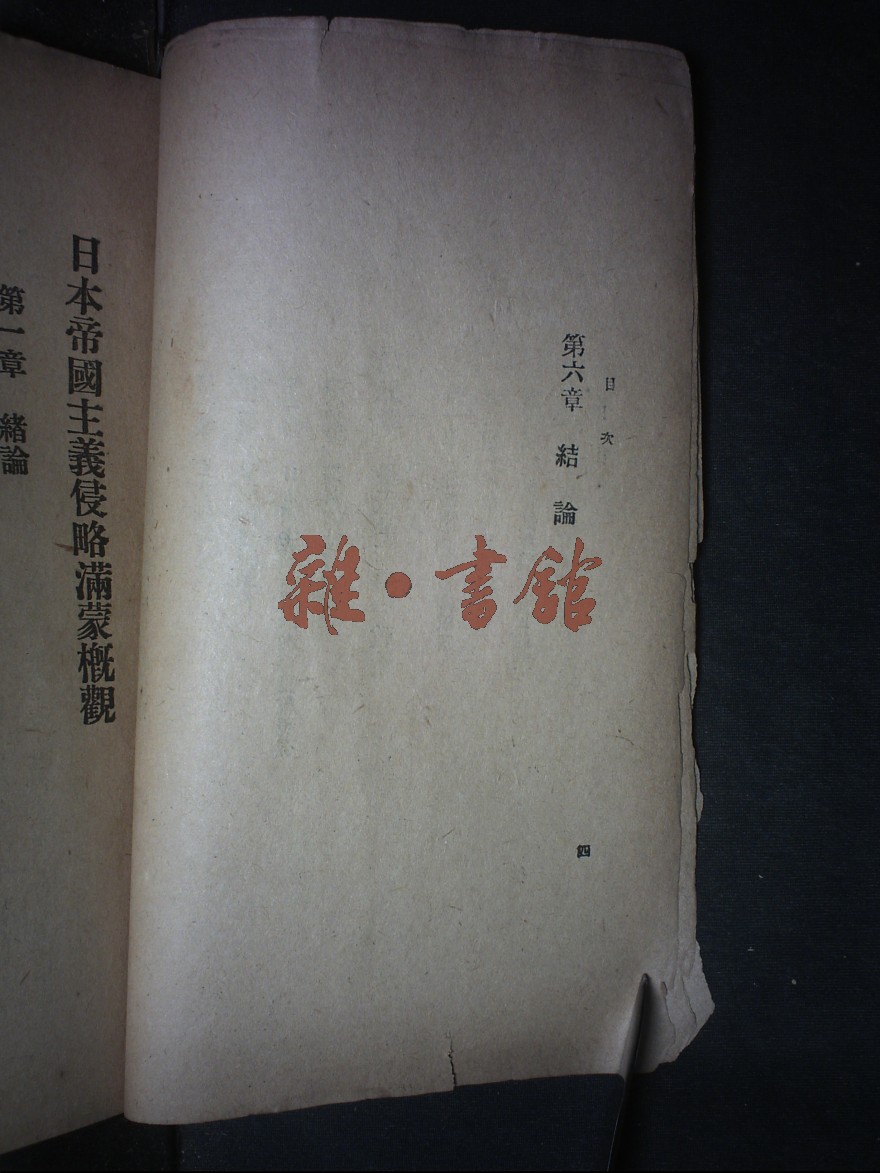 目次
第六章 結論
四
日本帝國主義侵略滿蒙概觀
第一章 緒論
雜·書館